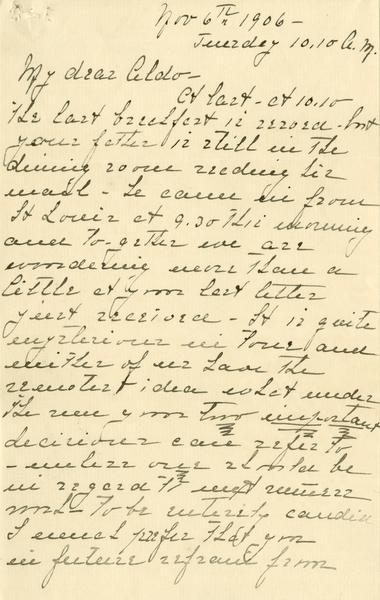 Nov 6th 1906 -
Tuesday 10.10 A.M.
My dear Aldo -
At last - at 10.10
the last breakfast is served - but
your father is still in the
dining room reading his
mail - He came in from
St Louis at 9.30 this morning
and to-gether we are
wondering more than a
little at your last letter
just received - It is quite
mysterious in tone and
neither of us have the
remotest idea what under
the sun your two important
decisions can refer to
- unless one should be
in regard to next summers
work - To be entirely candid
I much prefer that you
in future refrain from